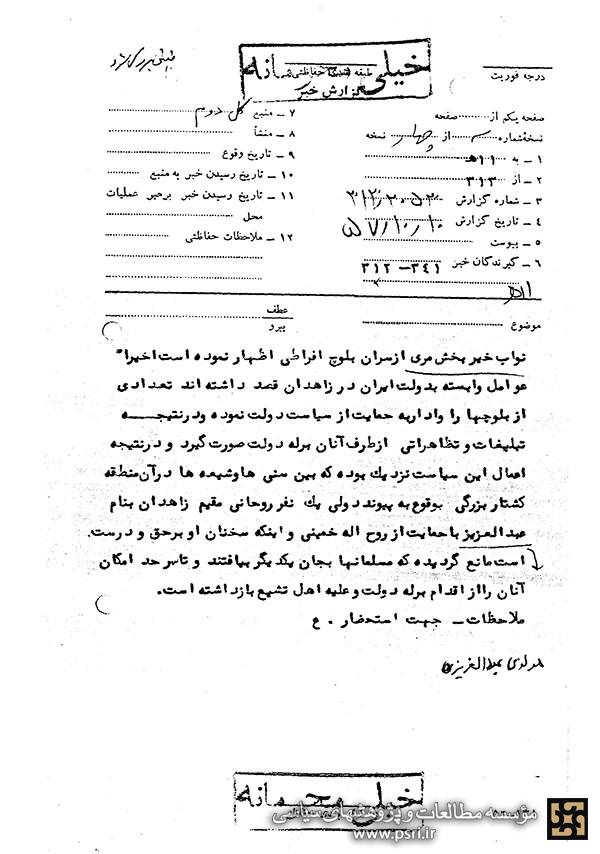 خیلی محرمانه
طبقه بندی حفاظتی
گزارش خبر
درجه فوریت
صفحه یکم از صفحه
نسخهٔ شماره سه از چهار نسخه
۱ – به ۱۱هـ
۲ – از ۳۱۳
۳ – شماره گزارش
۴ – تاریخ گزارش ۵۷/۱۰/۱۰
۵ – پیوست
۶ – گیرندگان خبر ۳۴۱–۳۱۲
۱۱هـ
۷ – منبع کل دوم
۸ – منشأ
۹ – تاریخ وقوع
۱۰ – تاریخ رسیدن خبر به منبع
۱۱ – تاریخ رسیدن خبر برهبر عملیات
محل
۱۲ – ملاحظات حفاظتی
موضوع
عطف
پیرو
نواب خیر بخش مری ازسران بلوچ افراطی اظهار نموده است اخیرا"
عوامل وابسته بدولت ایران در زاهدان قصد داشته اند تعدادی
از بلوچها را وادار به حمایت از سیاست دولت نموده ودرنتیجـــه
تبلیغات و تظاهراتی ازطرف آنان برله دولت صورت گیرد و درنتیجه
اعمال این سیاست نزدیك بوده كه بین سنی ها وشیعه ها درآن منطقه
كشتار بزرگی بوقوع به پیوندد ولی یك نفر روحانی مقیم زاهدان بنام
عبدالعزیز با حمایت از روح اله خمینی و اینكه سخنان او برحق و درست
است مانع گردیده كه مسلمانها بجان یكدیگر بیافتند و تاسرحد امكان
آنان رااز اقدام برله دولت و علیه اهل تشیع بازداشته است.
ملاحظات – جهت استحضار . ع
مولوی عبدالعزیز
خیلی محرمانه
مؤسسه مطالعات و پژوهشهای سیاسی
www.psri.ir